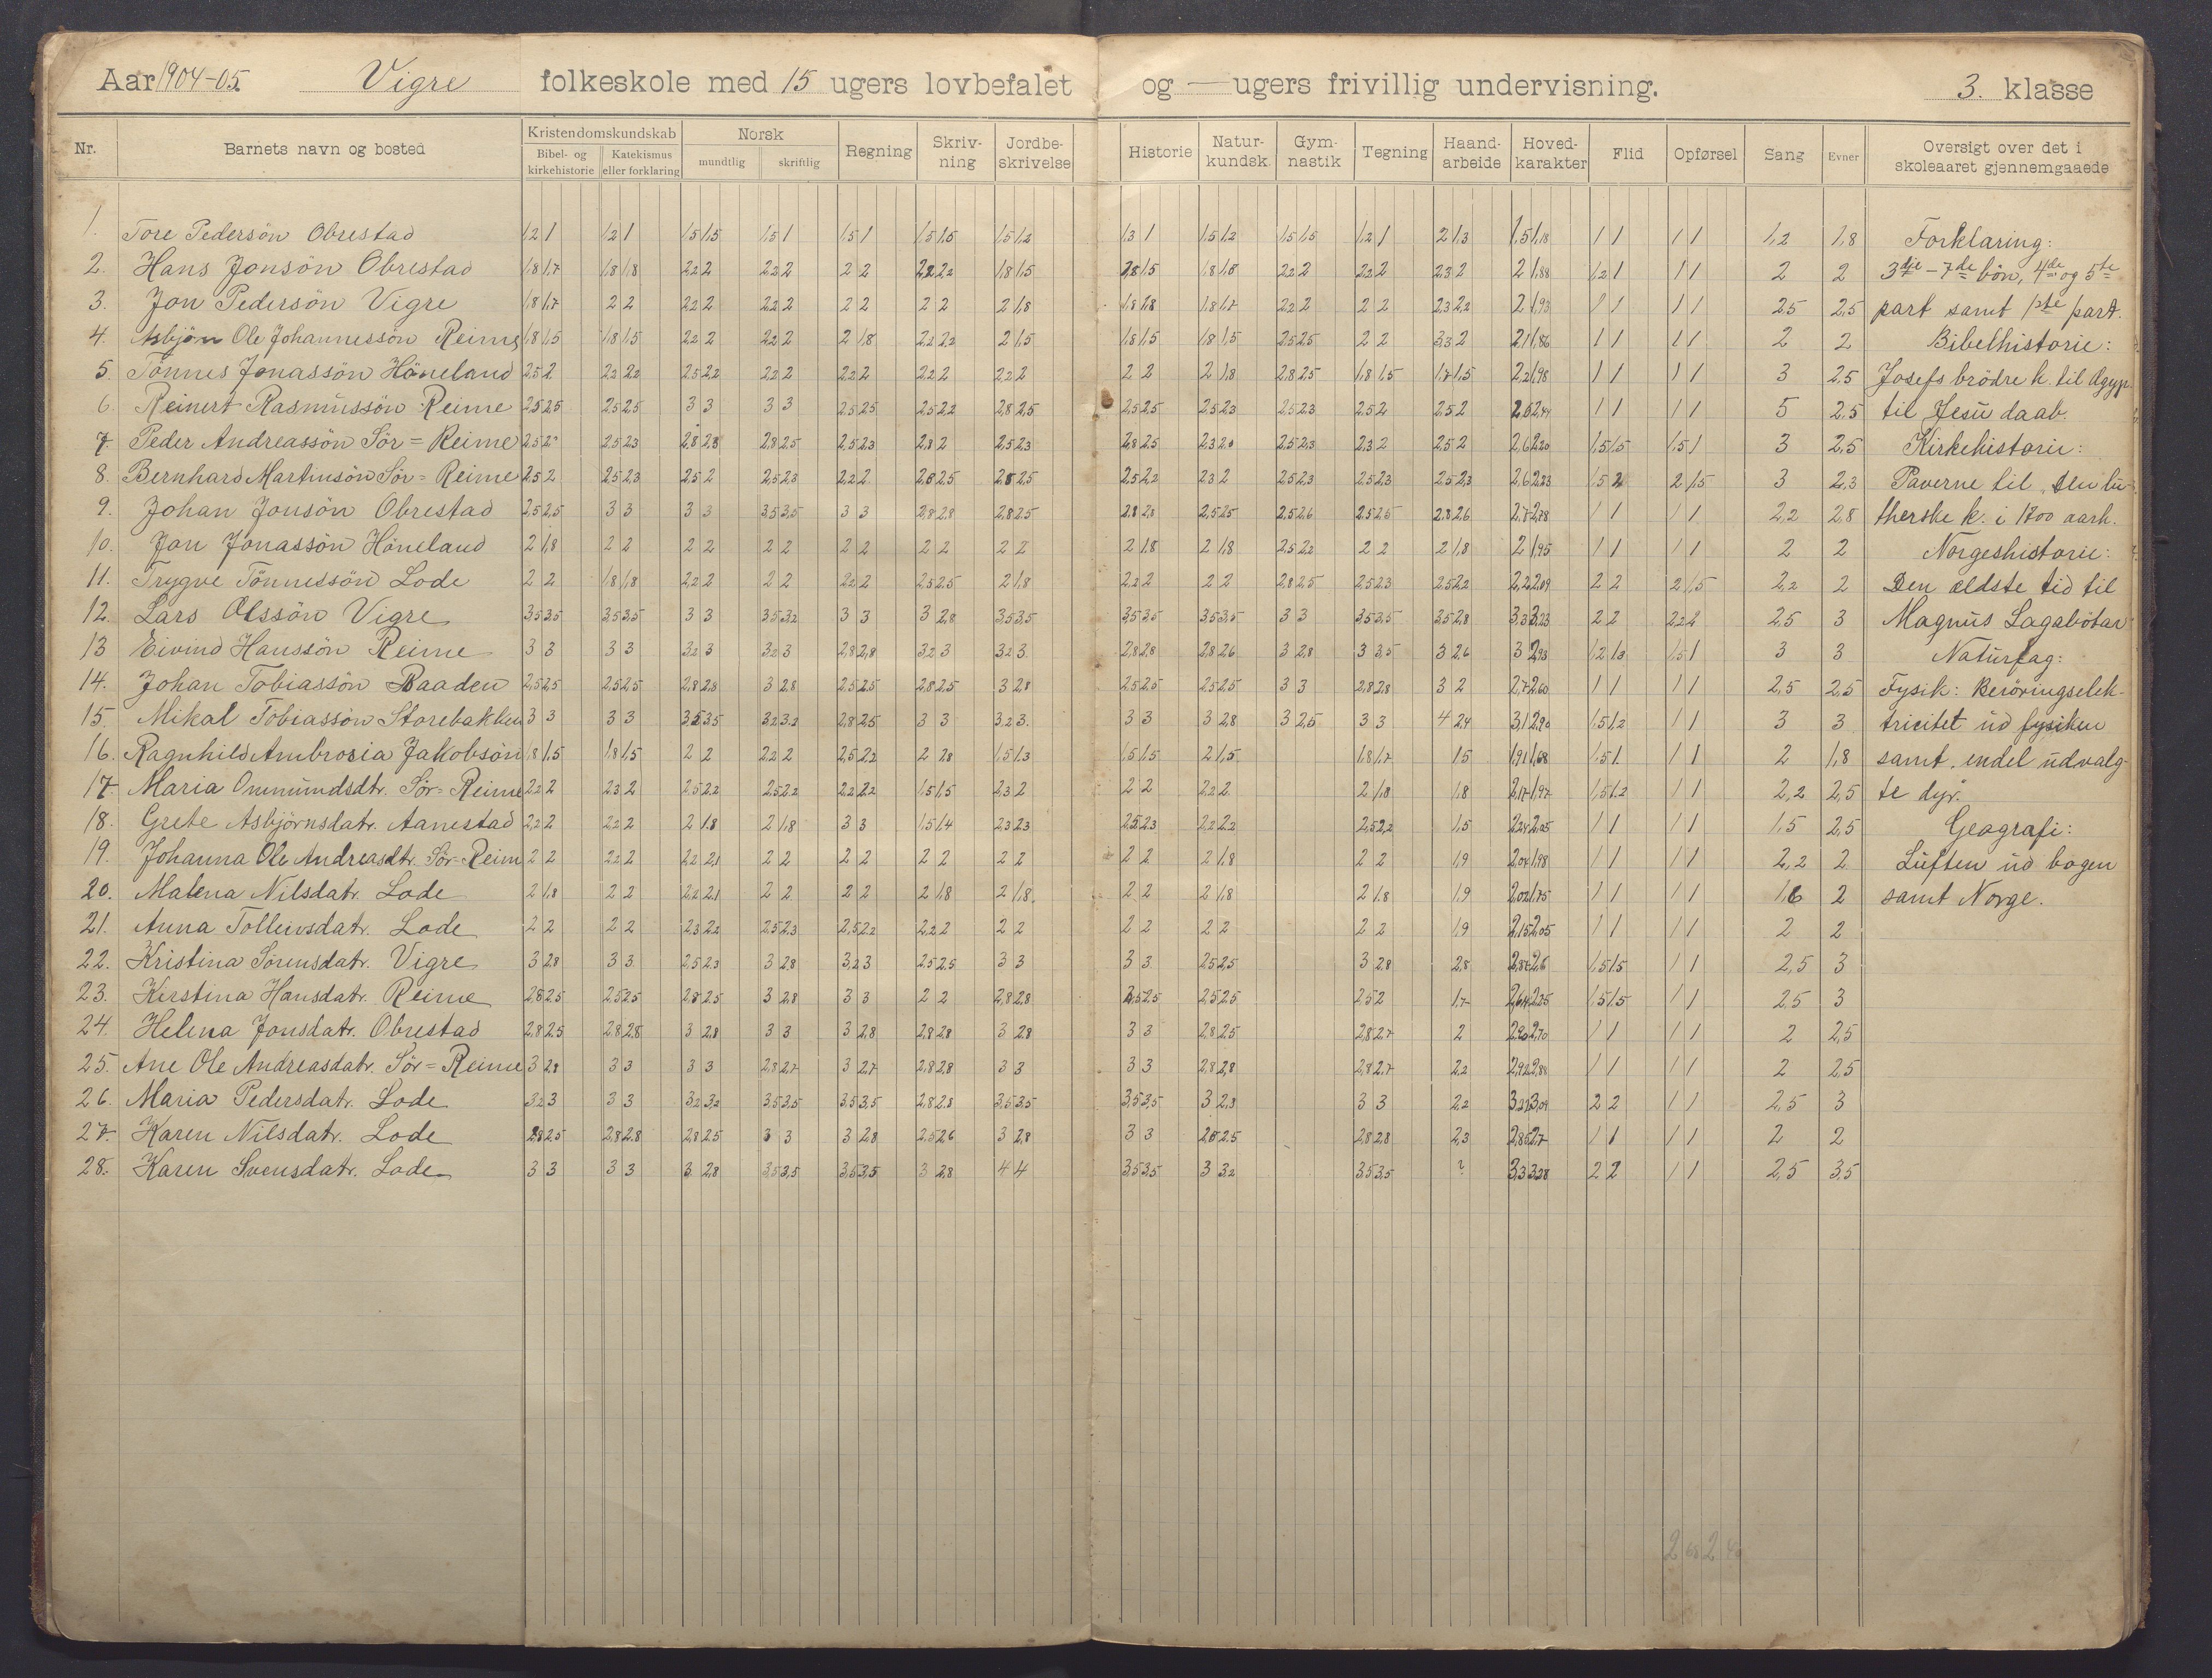 Aar 1904-05. Vigre folkeskole med 15 ugers lovbefalet og — ugers frivillig undervisning. 3. klasse
Nr. Barnets navn og bosted Kristendomskundskab Norsk Regning Skriv-ning Jordbe-skrivelse Historie Natur-kundsk. Gym-nastik Tegning Haand-arbeide Hoved-karakter Flid Opførsel Sang Evner Oversigt over det i skoleaaret gjennemgaaede
Bibel- og kirkehistorie Katekismus eller forklaring mundtlig skriftlig
1. Tore Pedersön Obrestad 1,2 1 1,2 1 1,5 1,5 1,5 1 1,5 1 1,5 1,5 1,5 1,2 1,3 1 1,5 1,2 1,5 1,5 1,2 1 2 1,3 1,5 1,18 1 1 1 1 1,2 1,8 Forklaring:
2. Hans Jonsön Obrestad 1,8 1,7 1,8 1,8 2,2 2 2,2 2 2 2 2,2 2,2 1,8 1,5 1,8 1,8 2,2 2 2,2 2 2,3 2 2 1,88 1,2 1 1 1 2 2 3die - 7de bön, 4de og 5te
3. Jon Pedersön Vigre 1,8 1,7 2 2 2,2 2 2,2 2 2 2 2 2 2 1,8 1,8 1,8 1,8 1,7 2,2 2 2 2 2,3 2,2 2 1,93 1 1 1 1 2,5 2,5 part samt 1ste part.
4. Asbjörn Ole Johannessön Reime 1,8 1,5 1,8 1,5 2,2 2 2,2 2 2 1,8 2,2 2,2 2 1,5 1,8 1,5 1,8 1,5 2,5 2,5 2 2 2 2,1 1,86 1 1 1 1 2 2 Bibelhistorie:
5. Tönnes Jonassön Höneland 2,5 2 2,2 2,2 2,5 2,2 2,2 2 2,2 2 2,2 2 2,2 2 2 2 2 1,8 2,8 2,5 1,8 1,5 1,7 1,5 2,2 1,98 1 1 1 1 3 2,5 Josefs brödre k. til Ægyp.
6. Reinert Rasmussön Reime 2,5 2,5 2,5 2,5 3 3 3 3 2,5 2,5 2,5 2,2 2,8 2,5 2,5 2,5 2,5 2,3 2,5 2,3 2,5 2 2,5 2 1 1 1 1 5 2,5 til Jesu daab.
7. Peder Andreassön Sör=Reime 2,5 2,5 2,3 2,8 2,8 2,8 2,5 2,5 2,3 2,8 2 2,5 2,3 2,8 2,5 2,3 2,0 2,5 2,3 2,3 2 2,5 2 2,6 2,20 1,5 1,5 1,5 1 3 2,5 Kirkehistorie:
8. Bernhard Martinsön Sör=Reime 2,5 2 2,5 2,3 2,5 2 2,5 2,3 2,2 2 2,8 2,5 2,8 2,5 2,5 2,2 2,3 2 2,5 2,3 2,5 2,3 2,5 2,3 2,6 2,23 1,5 2 2 1,5 3 2,3 Paverne til "Den lu-
9. Johan Jonsön Obrestad 2,5 2,5 3 3 3 3 3,5 3,5 3 3 2,8 2,8 2,8 2,5 2,8 2,8 2,5 2,5 2,5 2,6 2,5 2,5 2,8 2,6 2,8 2,78 1 1 1 1 2,2 2,8 therske k. i 1800 aarh.
10. Jon Jonassön Höneland 2 1,8 2 2 2 2 2 2 2 2 2 2 2 2 2 1,8 2 1,8 2,5 2,2 2 2 2 1,8 2 1,95 1 1 1 1 2 2 Norgeshistorie:
11. Trygve Tönnessön Lode 2 2 1,8 1,8 2,2 2 2 2 2,2 2 2,8 2,5 2 1,8 2,2 2 2 2 2,8 2,5 2,5 2,3 2,5 2,2 2,2 2,09 2 2 2 1,5 2,2 2 Den ældste tid til
12. Lars Olssön Vigre 3,5 3,5 3,5 3,5 3 3 3,5 3,2 3 3 3 2,8 3,5 3,5 3,5 3,5 3,5 3,5 3 3 3,5 3,5 3,5 2,8 3,3 3,23 2 2 2,2 2 2,5 3 Magnus Lagabötar
13 Eivind Hanssön Reime 3 3 3 3 3,2 3 3,2 3 2,8 2,8 3,2 3 3,2 3 2,8 2,8 2,8 2,6 3 2,8 3 3,5 3 2,6 3 2,93 1,2 1,3 1,5 1 3 3 Naturfag:
14. Johan Tobiassön Raaden 2,5 2,5 2,5 2,5 2,8 2,8 3 2,8 2,5 2,5 2,8 2,5 3 2,8 2,5 2,5 2,5 2,5 3 3 2,8 2,8 3 2 2,7 2,60 1 1 1 1 2,5 2,5 Fysik: Beröringselek-
15. Mikal Tobiassön Storebakken 3 3 3 3 3,5 3,5 3,2 3,2 2,8 2,5 3 3 3,2 3 3 3 3 2,8 3 2,5 3 3 4 2,4 3,1 2,90 1,5 1,2 1 1 3 3 tricitet ud fysiken
16. Ragnhild Ambrosia Jakobsön 1,8 1,5 1,8 1,5 2 2 2,2 2 2,5 2,2 2 2,8 1,5 1,3 1,5 1,5 2 1,5 1,8 1,7 1,5 1,91 1,68 1,5 1 1 1 2 1,8 samt endel udvalg-
17. Maria Ommundsdtr. Sör=Reime 2,2 2 2,3 2 2,5 2,2 2,5 2,2 2,2 2,2 1,5 1,5 2,3 2 2 2 2,2 2 2 1,8 1,8 2,17 1,97 1,5 1,2 1 1 2,2 2,5 te dyr.
18. Grete Asbjörnsdatr. Aanestad 2,2 2 2,2 2 2 1,8 2 1,8 3 3 1,5 1,4 2,3 2,3 2,5 2,3 2,2 2,2 2,5 2,2 1,5 2,24 2,05 1 1 1 1 1,5 2,5 Geografi:
19. Johanna Ole Andreasdtr. Sör-Reim 2 2 2,2 2 2,2 2,1 2 2 2 2 2 2 2 2 2 2 2 1,8 2 2 1,9 2,04 1,98 1 1 1 1 2,2 2 Luften ud bogen
20. Malena Nilsdatr. Lode 2 1,8 2 2 2,2 2,1 2 2 2 2 2 1,8 2 1,8 2 2 2 1,8 2 1,8 1,9 2,02 1,75 1 1 1 1 1,6 2 samt Norge.
21. Anna Tolleivsdatr. Lode 2 2 2 2 2,3 2,2 2,5 2,3 2,5 2,2 2,2 2 2 2 2 2 2 2 2 2 1,9 2,15 2,05 1 1 1 1 2 2
22. Kristina Sörensdatr. Vigre 3 2,8 3 3 2,5 2,3 3 2,8 3,2 3 2,5 2,5 3 3 3 3 2,5 2,5 3 2,8 2,8 2,87 2,6 1,5 1,5 1 1 2,5 3
23. Kirstina Hansdatr. Reime 2,8 2,5 2,5 2,5 2,8 2,5 3 2,8 3 3 2 2 2,8 2,8 2,5 2,5 2,5 2,5 2,5 2 1,7 2,64 2,25 1,5 1,5 1 1 2,5 3
24. Helena Jonsdatr. Obrestad 2,8 2,5 2,8 2,8 3 2,8 3 3 3 2,8 2,8 2,8 3 2,8 3 3 2,8 2,5 2,8 2,7 2 2,90 2,70 1 1 1 1 2 2,5
25. Ane Ole Andreasdatr. Sör=Reime 3 2,8 3 3 3 3 2,8 2,7 3 2,7 2,8 2,8 3 3 3 3 2,8 2,8 2,8 2,7 2,2 2,92 2,84 1 1 1 1 2 2,5
26. Maria Pedersdatr. Lode 3,2 3 3 3 3,2 3,2 3,5 3,5 3,5 3,5 2,8 2,8 3,5 3,5 3,5 3,5 3 2,8 3 3 2,2 3,27 3,09 2 2 1 1 2,5 3
27. Karen Nilsdatr. Lode 2,8 2,5 2,8 2,8 2,8 2,5 3 3 3 2,8 2,5 2,6 3 2,8 3 3 2,5 2,5 2,8 2,8 2,3 2,85 2,7 1 1 1 1 2 2
28. Karen Svensdatr. Lode 3 3 3 3 3 2,8 3,5 3,5 3,5 3,5 3 2,8 4 4 3,5 3,5 3 3,2 3,5 3,5 ? 3,3 3,28 2 2 1 1 2,5 3,5